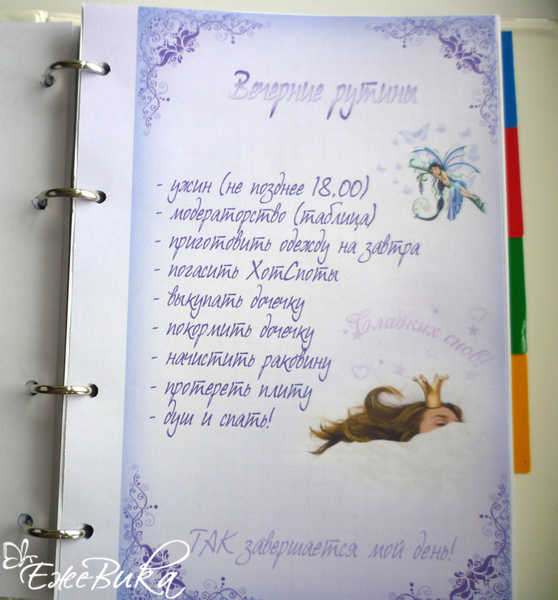 Вечерние рутины
- ужин (не позднее 18.00)
- модераторство (таблица)
- приготовить одежду на завтра
- погасить ХотСпоты
- выкупать дочечку
- покормить дочечку
- начистить раковину
- протереть плиту
- душ и спать!
Сладких снов!
ТАК завершается мой день!
ЕжеВика